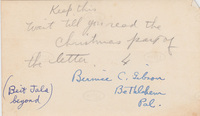 Keep this
Won't Tell you read the
Christmas part of
the letter.
Bernice C. Gibson
Bethlehem
Pa.
(Beit Jala
beyond)